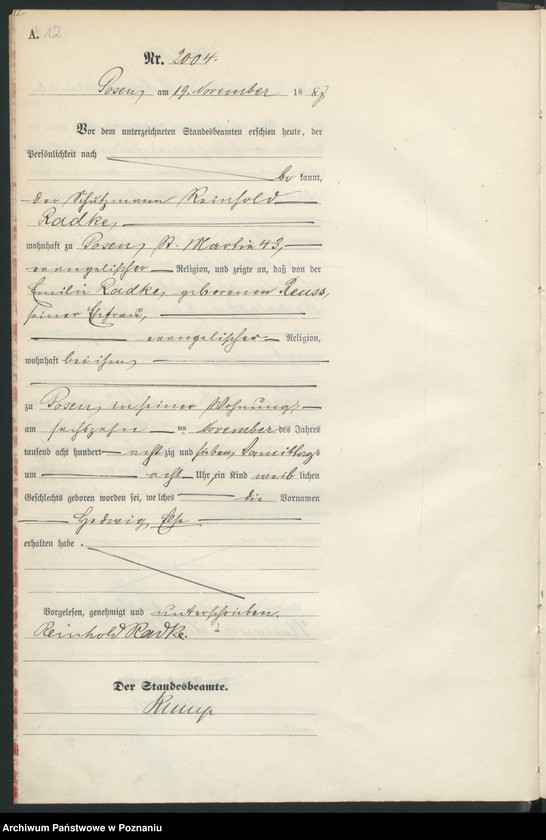 A. 12
Nr. 2004.
Posen, am 19. November 1887
Vor dem unterzeichneten Standesbeamten erschien heute, der
Persönlichkeit nach
be kannt,
der Schutzmann Reinhold
Radke,
wohnhaft zu Posen, St. Martin 43,
evangelischer Religion, und zeigte an, daß von der
Emilie Radke, geborenen Reuss,
seiner Ehefrau,
evangelischer Religion,
wohnhaft bei ihm,
zu Posen, in seiner Wohnung,
am sechszehn ten November des Jahres
tausend acht hundert acht zig und sieben, Vormittags
um acht Uhr, ein Kind weib lichen
Geschlechts geboren worden sei, welches die Vornamen
Hedwig, Else
erhalten habe.
Vorgelesen, genehmigt und unterschrieben.
Reinhold Radke.
Der Standesbeamte.
Archiwum Państwowe w Poznaniu